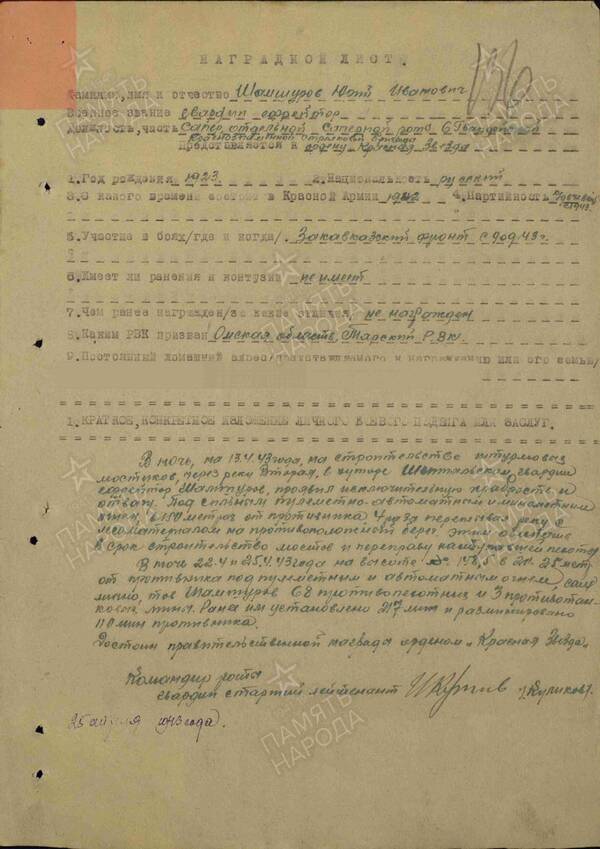 НАГРАДНОЙ ЛИСТ
Фамилия, имя и отчество Шамшуров Юрий Иванович
Военное звание гвардии ефрейтор
Должность, часть Сапер отдельной саперной роты 6 Гвардейской
стрелковой бригады
Представляется к ордену Красная Звезда
1. Год рождения 1923. 2. Национальность русский
3. С какого времени состоит в Красной Армии 1942 4. Партийность
5. Участие в боях/где и когда/. Закавказский фронт с 43 г.
6. Имеет ли ранения и контузии не имеет
7. Чем ранее награжден/за какие отличия не награжден
8. Каким РВК призван Омская область, Тарский РВК.
9. Постоянный домашний адрес/представляемого к награждению или его семьи/
1. КРАТКОЕ, КОНКРЕТНОЕ ИЗЛОЖЕНИЕ ЛИЧНОГО БОЕВОГО ПОДВИГА ИЛИ ЗАСЛУГ.
В ночь, на 13.4.43 года, на строительстве штурмовых
мостиков, через реку Вторая, в хуторе гвардии
ефрейтор Шамшуров, проявил исключительную храбрость и
отвагу. Под сильным пулеметно-автоматным и минометным
огнем, в 150 метрах от противника 4 раза переплывал реку с
лесоматериалом на противоположный берег. Этим обеспечив
в срок строительство мостов и переправу пехоты
В ночь 22.4 и 25.4.43 года на высоте 20-25 мет
от противника под пулеметным и автоматным огнем, сам
лично, тов Шамшуров 68 противопехотных и 3 противотан-
ковых мины. Ранее им установлено 217 мин и разминировано
110 мин противника.
Достоин правительственной награды орденом „Красная Звезда“
Командир роты
гвардии старший лейтенант /Куликов/.
25 апреля 1943 года.
ПАМЯТЬ НАРОДА